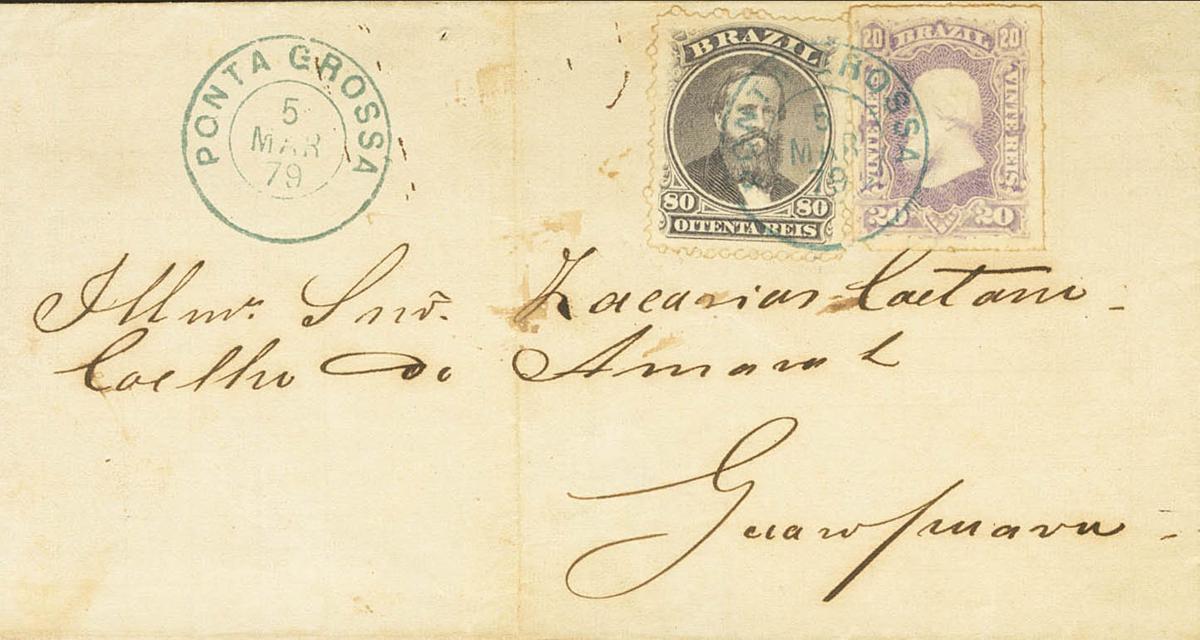 PONTA GROSSA
5
MAR
79
BRAZIL
80 80
OITENTA REIS
20 BRAZIL 20
VINTE REIS
VINTE REIS
20 20
ROSSA
5
MAR
79
Illmo. Snr. Zacarias Caetano
Coelho do Amaral
Guarapuava